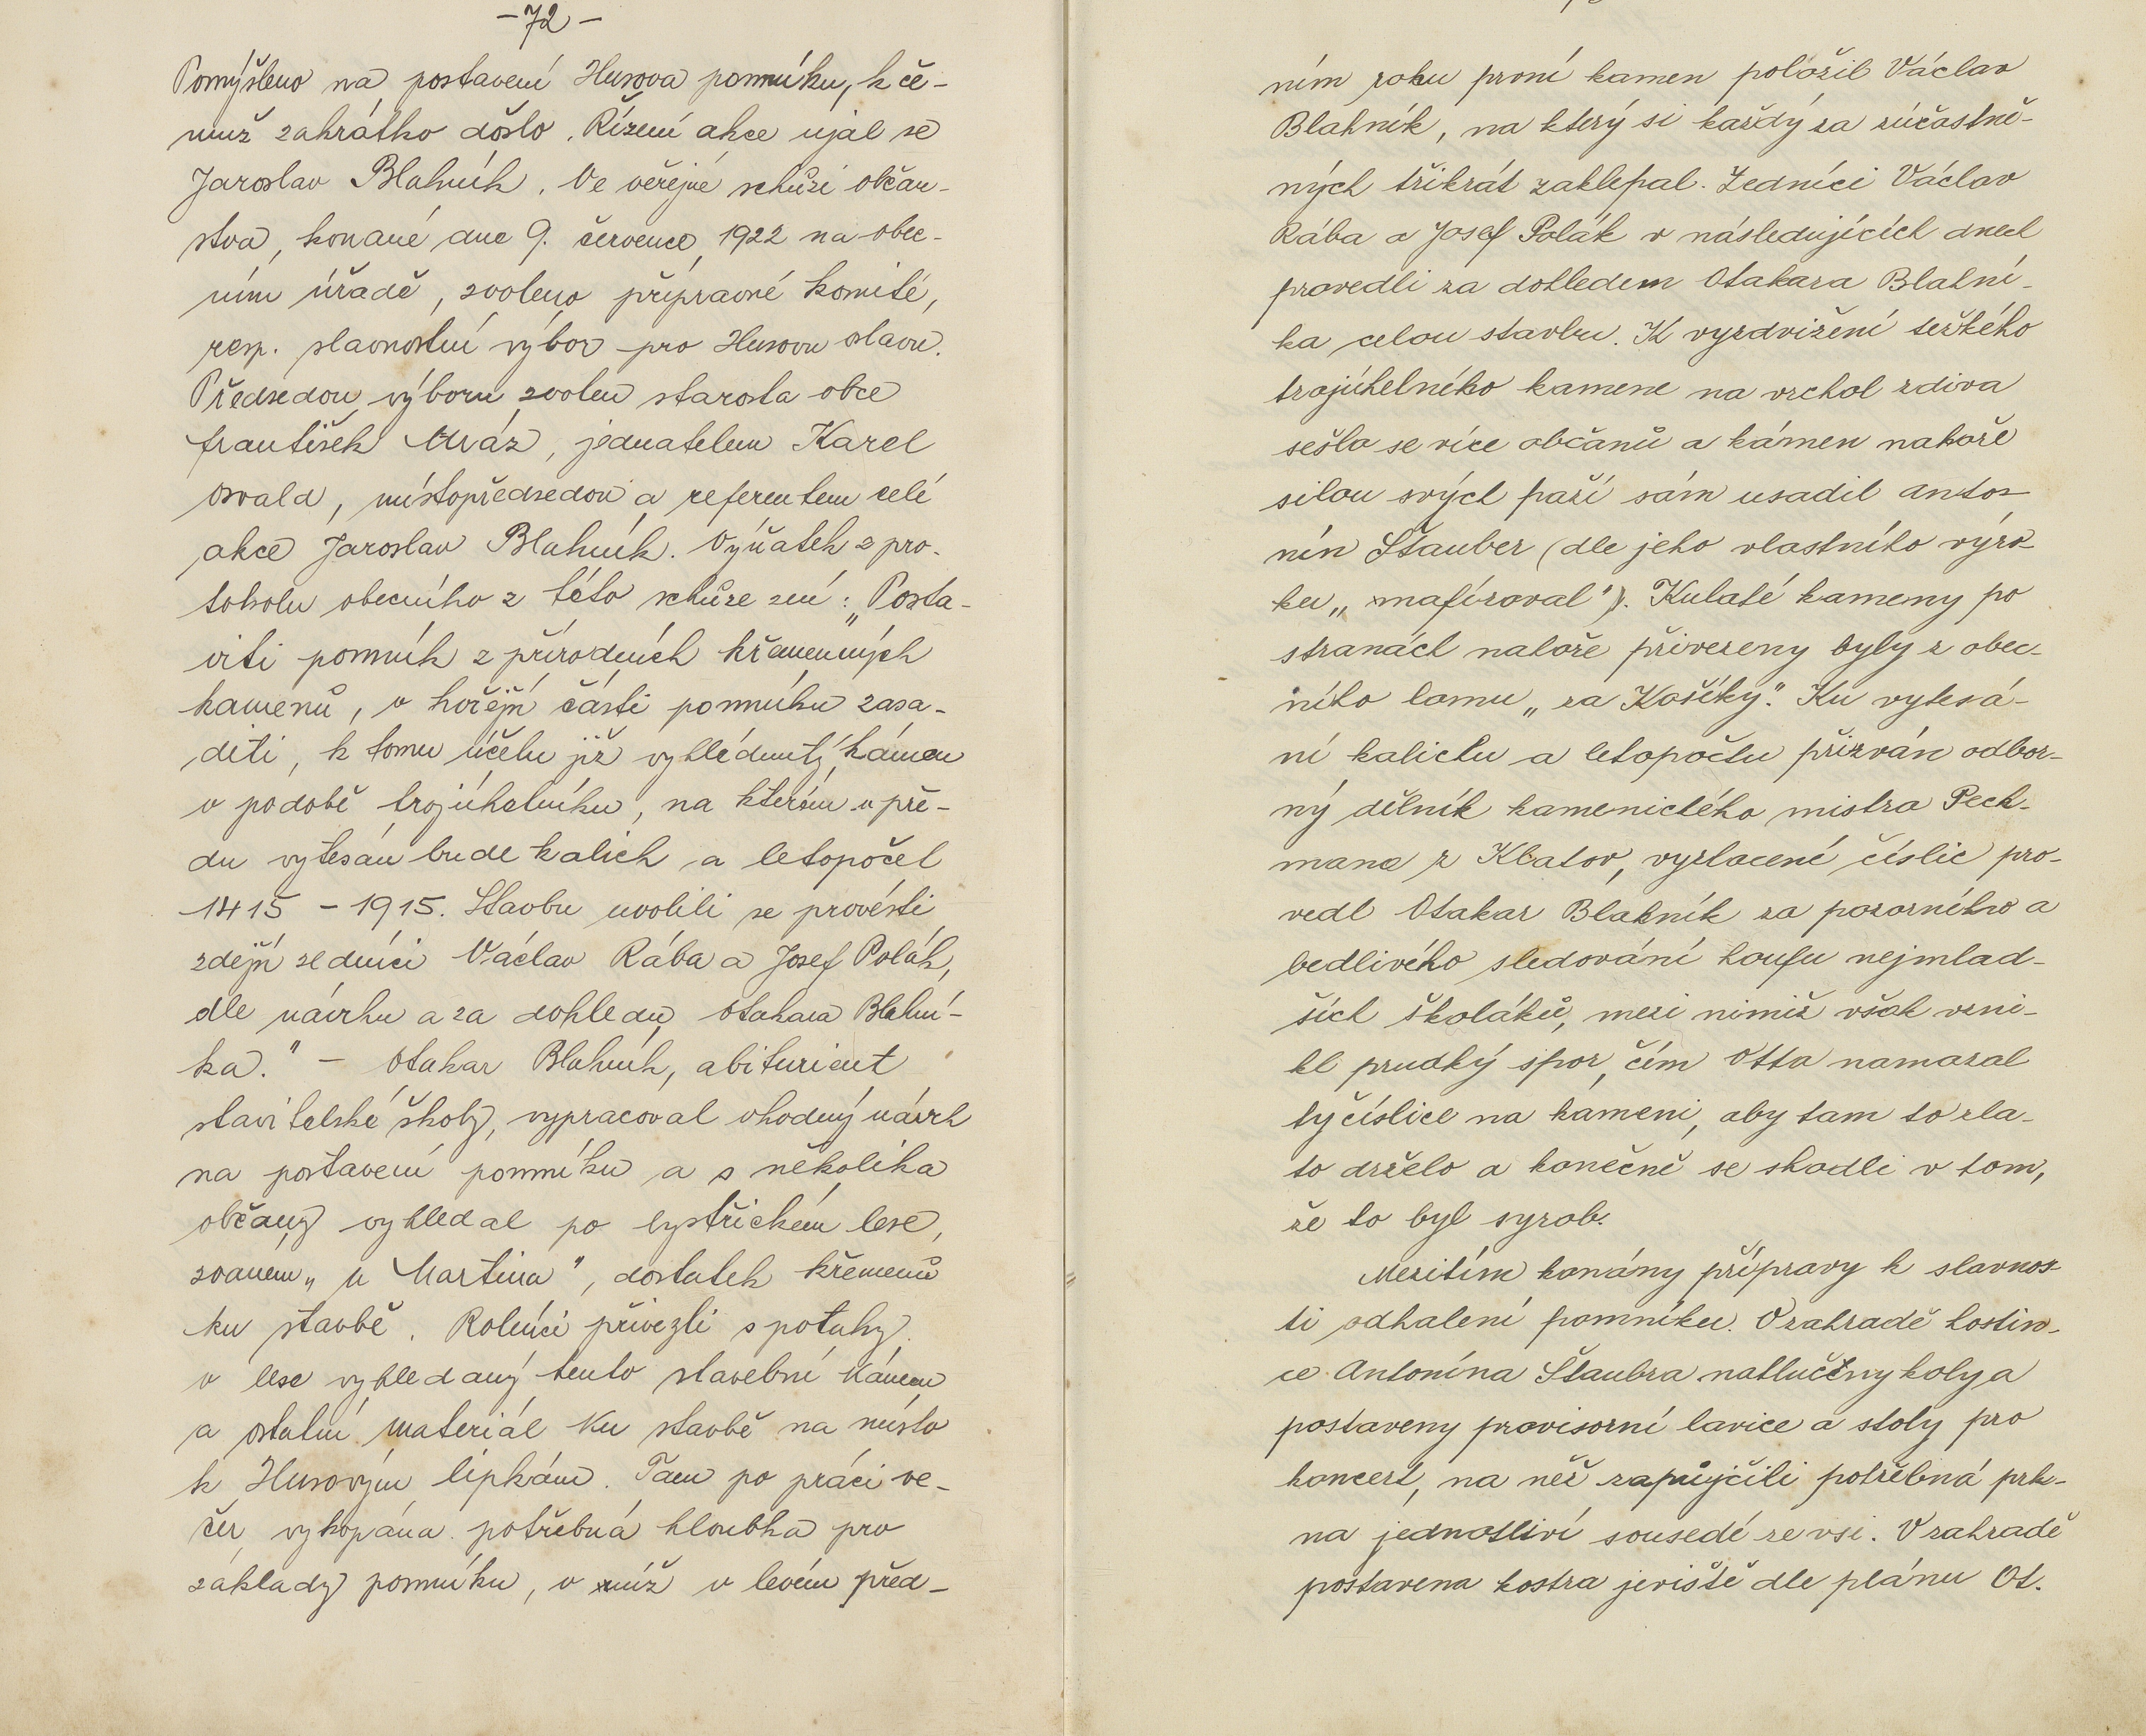 -72-
Pomýšleno na postavení Husova pomníku, k če-
muž zakrátko došlo. Řízení akce ujal se
Jaroslav Blahník. Ve veřejné schůzi občan-
stva, konané dne 9. července 1922 na obec-
ním úřadě, zvoleno přípravné komité,
resp. slavnostní výbor pro Husovu oslavu.
Předsedou výboru zvolen starosta obce
František Mráz, jednatelem Karel
Osvald, místopředsedou a referentem celé
akce Jaroslav Blahník. Výňatek z pro-
tokolu obecního z této schůze zní: „Posta-
viti pomník z přírodních křemenných
kamenů, v hořejší části pomníku zasa-
diti, k tomu účelu již vyhlédnutý kámen
v podobě trojúhelníku, na kterém v pře-
du vytesán bude kalich a letopočet
1415 - 1915. Stavbu uvolili se provésti
zdejší zedníci Václav Rába a Josef Polák,
dle návrhu a za dohledu Otakara Blahní-
ka." - Otakar Blahník, abiturient
stavitelské školy, vypracoval vhodný návrh
na postavení pomníku a s několika
občany vyhledal po bystřickém lese,
zvaném „u Martina", dostatek křemenů
ku stavbě. Rolníci přivezli s potahy
v lese vyhledaný tento stavební kámen
a ostatní materiál ku stavbě na místo
k Husovým lípkám. Tam po práci ve-
čer vykopána potřebná hloubka pro
základy pomníku, v níž v levém před-
ním rohu první kamen položil Václav
Blahník, na který si každý za zúčastně-
ných třikrát zaklepal. Zedníci Václav
Rába a Josef Polák v následujících dnech
provedli za dohledem Otakara Blahní-
ka celou stavbu. K vyzdvižení težkého
trojúhelného kamene na vrchol zdiva
sešlo se více občanů a kámen nahoře
silou svých paží sám usadil Anto-
nín Štauber (dle jeho vlastního výro-
ku „mafíroval"). Kulaté kameny po
stranách nahoře přivezeny byly z obec-
ního lomu „za Košíky". Ku vytesá-
ní kalichu a letopočtu přizván odbor-
ný dělník kamenického mistra Pech-
mana z Klatov, vyzlacení číslic pro-
vedl Otakar Blahník za pozorného a
bedlivého sledování houfu nejmlad-
ších školáků, mezi nimiž však vzni-
kl prudký spor, čím Otta namazal
ty číslice na kameni, aby tam to zla-
to drželo a konečně se shodli v tom,
že to byl syrob.
Mezitím konány přípravy k slavnos-
ti odhalení pomníku. V zahradě hostin-
ce Antonína Štaubra natlučeny koly a
postaveny provisorní lavice a stoly pro
koncert, na něž zapůjčili potřebná prk-
na jednotliví sousedé ze vsi. V zahradě
postavena kostra jeviště dle plánu Ot.